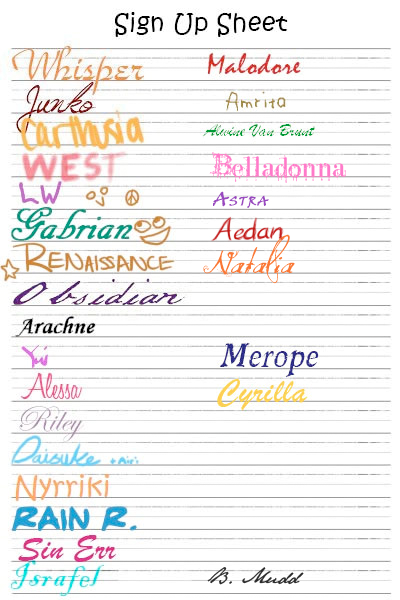 Sign Up Sheet
Whisper Malodore
Junko Amrita
Carthusia Alwine Van Brunt
WEST Belladonna
LW ASTRA
Gabrian Aedan
RENAISSANCE Natalia
Obsidian
Arachne
Yui Merope
Alessa Cyrilla
Riley
Daisuke + Miri
Nyrriki
RAIN R.
Sin Err
Israfel B. Mudd